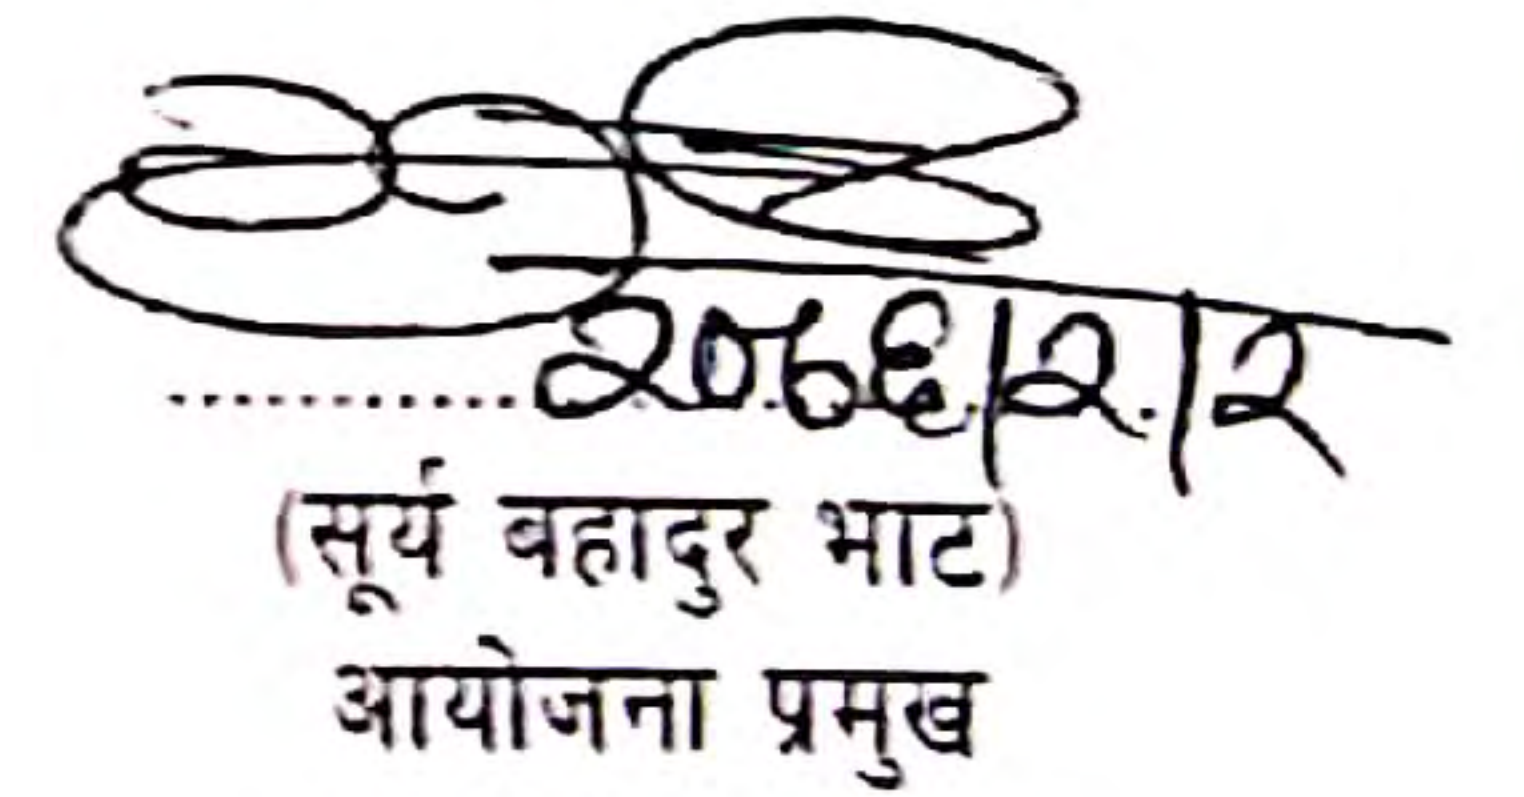 २०७६/२/२
(सूर्य बहादुर भाट)
आयोजना प्रमुख